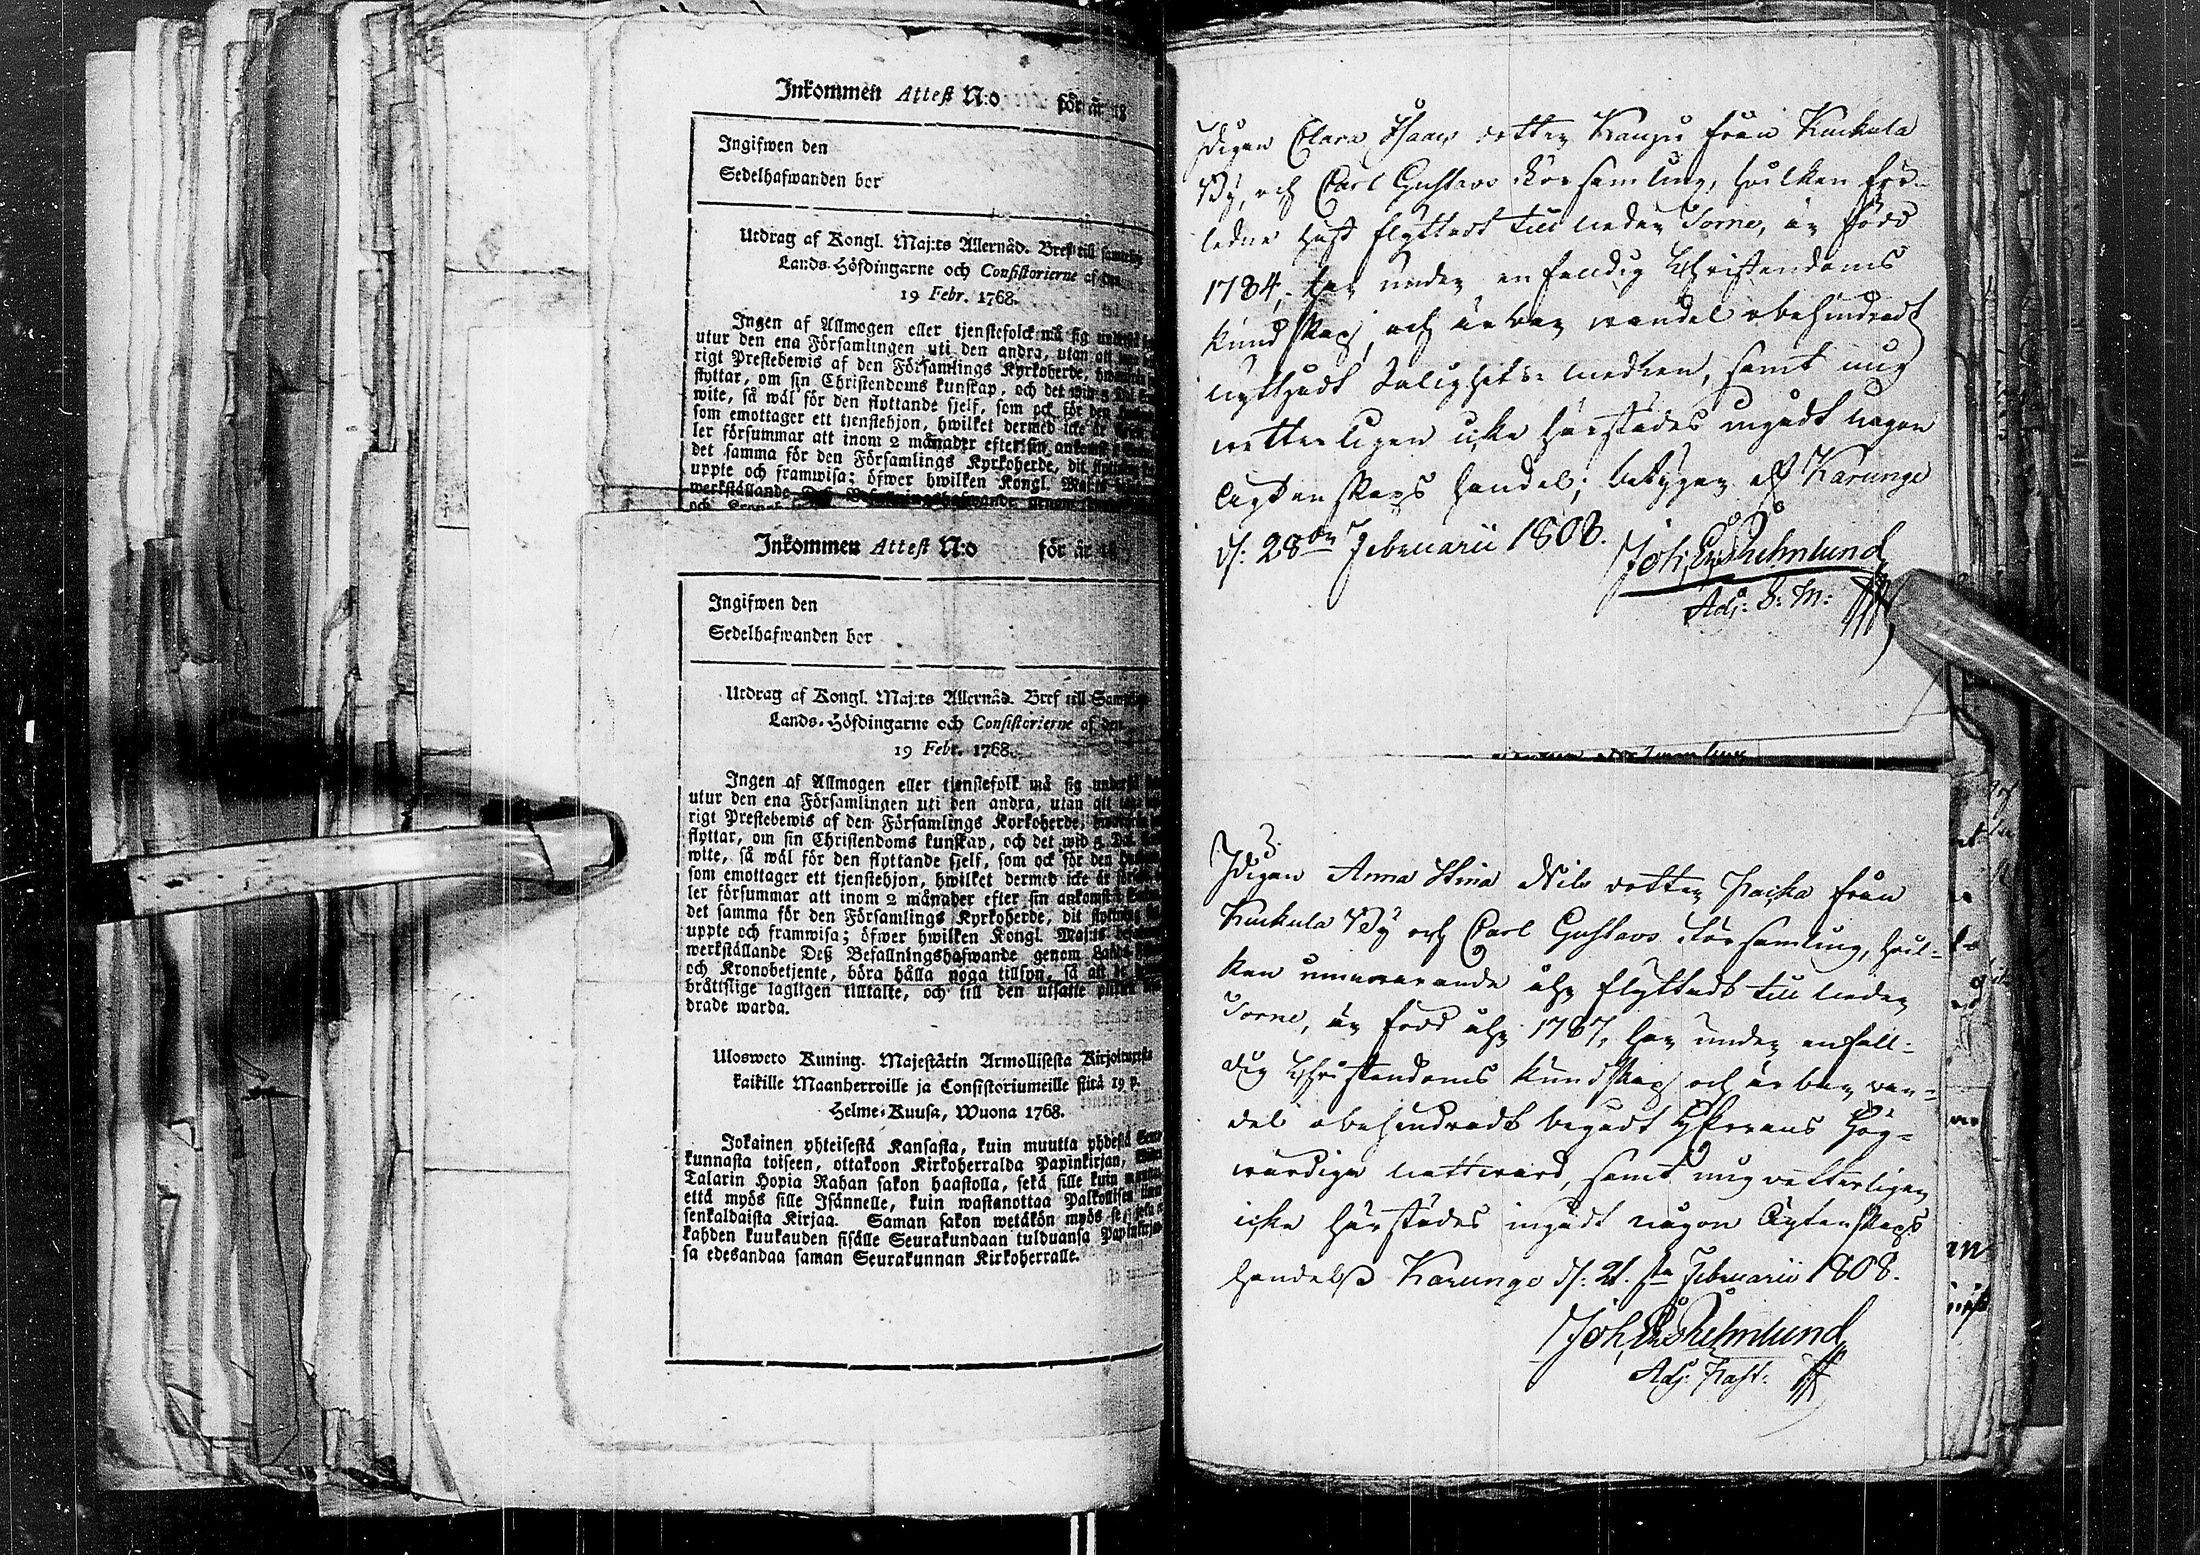 Inkommen Attest N:o för år 18
Ingifwen den
Sedelhafwanden bor
Utdrag af Kongl. Maj:ts Allernåd. Bref till samtelige
Lands-Höfdingarne och Consistorierne af den
19 Febr. 1768.
Ingen af Allmogen eller tjenstefolck må sig
utur den ena Församlingen uti den andra, utan att
rigt Prestebewis af den Församlings Kyrkoherde,
flyttar, om sin Christendoms kunskap, och det wid 5
wite, så wäl för den flyttande sjelf, som ock för den
som emottager ett tjenstehjon, hwilket dermed icke är
ler försummar att inom 2 månader efter sin ankomst
det samma för den Församlings Kyrkoherde, dit
uppte och framwisa; öfwer hwilken Kongl. Maj:ts
werkställande Deß Befallningshafwande genom
och
Inkommen Attest N:o för år 18
Ingifwen den
Sedelhafwanden bor
Utdrag af Kongl. Maj:ts Allernåd. Bref till
Lands-Höfdingarne och Consistorierne af den
19 Febr. 1768.
Ingen af Allmogen eller tjenstefolk må sig
utur den ena Församlingen uti den andra, utan att
rigt Prestebewis af den Församlings Kyrkoherde,
flyttar, om sin Christendoms kunskap, och det wid 5
wite, så wäl för den flyttande sjelf, som ock för den
som emottager ett tjenstehjon, hwilket dermed icke är
ler försummar att inom 2 månader efter sin ankomst
det samma för den Församlings Kyrkoherde, dit
uppte och framwisa; öfwer hwilken Kongl. Maj:ts
werkställande Deß Befallningshafwande genom
och Kronobetjente, böra hålla noga tillsyn, så att
brättslige lagligen tilltalte, och till den utsatte
drade warda.
Ulosweto Kuning. Majestätin Armollisesta Kirjoituxesta
kaikille Maanherroille ja Consistoriumeille siitä 19 p.
Helme-Kuusa, Wuona 1768.
Jokainen yhteisestä Kansasta, kuin muutta yhdestä
kunnasta toiseen, ottakoon Kirkoherralda Papinkirjan,
Talarin Hopia Rahan sakon haastolla, sekä sille kuin
että myös sille Isännelle, kuin wastanottaa Palkollisen
senkaldaista Kirjaa. Saman sakon wetäkön myös se,
kahden kuukauden sisälle Seurakundaan tulduansa
sa edesandaa saman Seurakunnan Kirkoherralle.
Pigan Clara Isaacs dotter from Kuckula
By, och Carl Gustavs Församling, hvilken för-
ledne höst flyttadt till neder Torne, är född
1784, har under enfaldig Christendoms
kundskap, och ärbar vandel obehindradt
nyttjadt Salighets-medlen, samt mig
vetterligen icke härstädes ingådt någon
Ägtenskaps handel; betygar af Karungi
d: 28de Februarii 1808.
Joh. Ehrnlund
Adj: P: M:
3.
Pigan Anna Stina Nils dotter Packa från
Kuckula By och Carl Gustavs Församling, hvil-
ken innevarande åhr flyttadt till neder
Torne, är född åhr 1787, har under enfall-
dig Christendoms kundskap och ärbar van-
del obehindradt begådt HErrans Hög-
wärdiga nattvard, samt mig vetterligen
icke härstädes ingådt någon Ägtenskaps
handel Karungi d: 21.sta Februarii 1808.
Adj: Past: